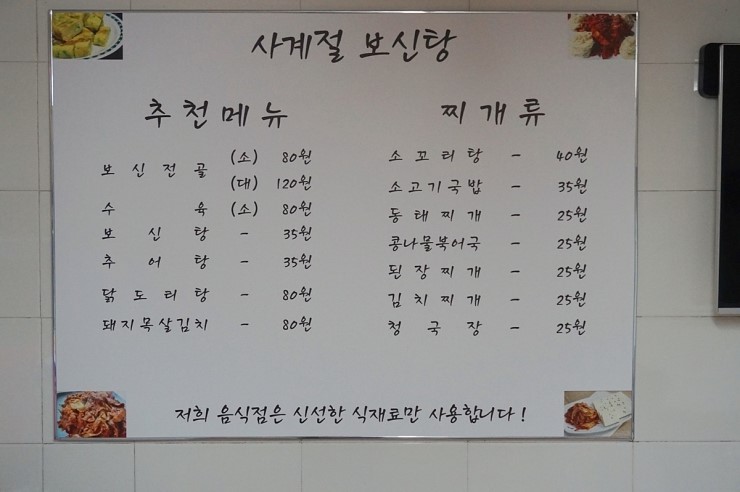 사계절 보신탕
추천메뉴
보신전골 (소) 80원
(대) 120원
수 육 (소) 80원
보 신 탕 - 35원
추 어 탕 - 35원
닭도리탕 - 80원
돼지목살김치 - 80원
찌개류
소꼬리탕 - 40원
소고기국밥 - 35원
동태찌개 - 25원
콩나물북어국 - 25원
된장찌개 - 25원
김치찌개 - 25원
청 국 장 - 25원
저희 음식점은 신선한 식재료만 사용합니다!